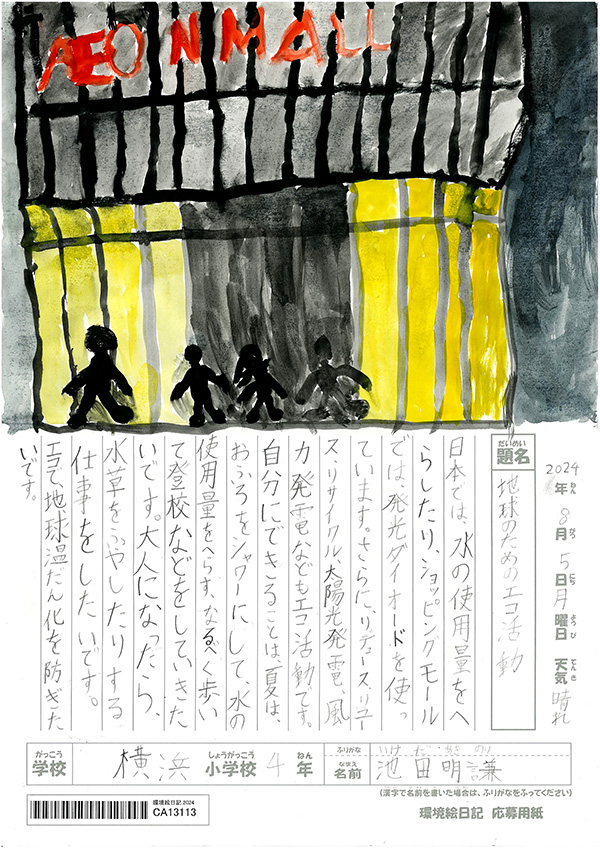 AEON MALL
2024年 8月 5日 月曜日 天気 晴れ
ねん がつ にち ようび てんき
だいめい
題名
地球のためのエコ活動
日本では、水の使用量をへ
らしたり、ショッピングモール
では、発光ダイオードを使っ
ています。さらに、リデュース、リユー
ス、リサイクル、太陽光発電、風
力発電などもエコ活動です。
自分にできることは、夏は、
おふろをシャワーにして、水の
使用量をへらす、なるべく歩い
て登校などをしていきた
いです。大人になったら、
水草をふやしたりする
仕事をしたいです。
エコで、地球温だん化を防ぎた
いです。
がっこう しょうがっこう ねん
学校 横浜 小学校 4年
ふりがな いけ だ あき のり
なまえ
名前 池田明謙
(漢字で名前を書いた場合は、ふりがなをふってください)
環境絵日記 2024
CA13113
環境絵日記 応募用紙